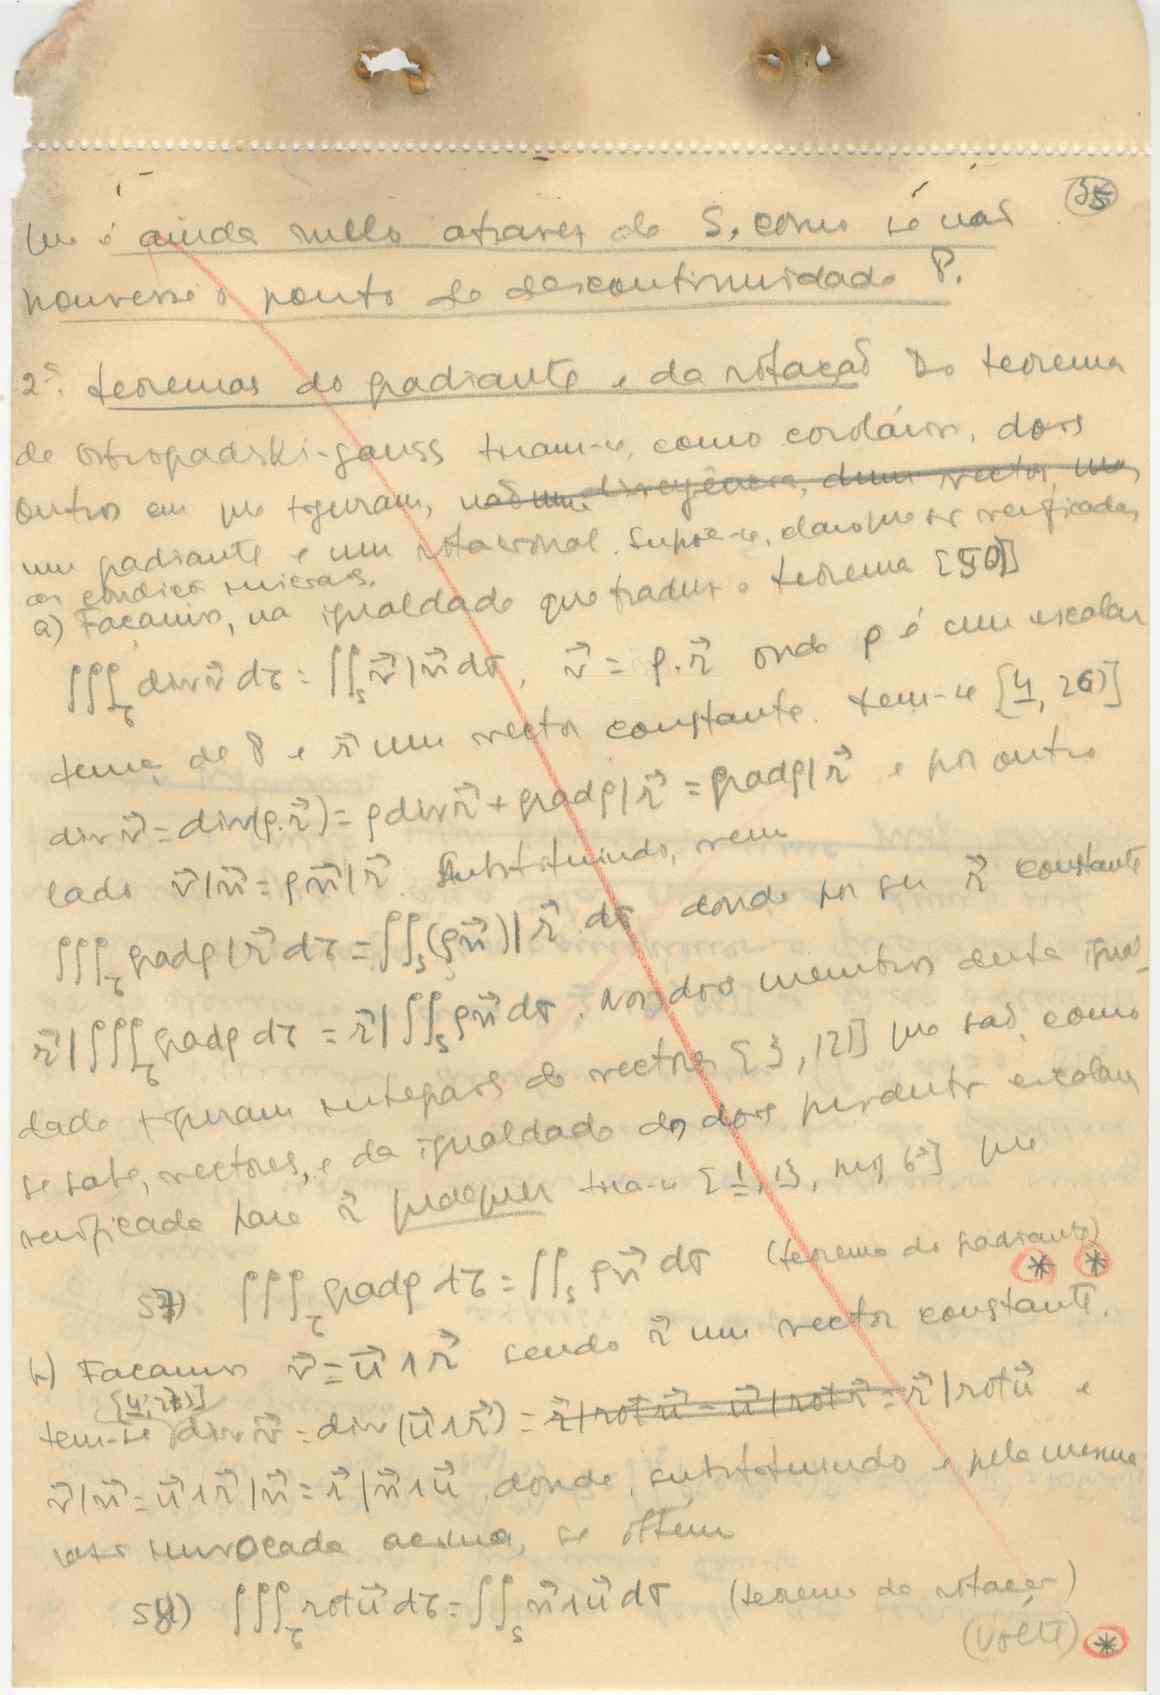 35
que é ainda nullo atraves de S, como se não
houvesse o ponto de descontinuidade P.
2º. teoremas do gradiante e da rotação Do teorema
de Ostrogradski-Gauss tiram-se, como corolários, dois
outros em que figuram,
um gradiante e um rotacional. Supõe-se, claro que se verificadas
as condições iniciais.
a) Façamos, na igualdade que traduz o teorema [50)]
∭_τ div v⃗ dτ = ∬_S v⃗|n⃗ dσ, v⃗ = ρ.r⃗ onde ρ é um escalar
de P e r⃗ um vector constante. tem-se [4, 26)]
div v⃗ = div(ρ.r⃗) = ρ div r⃗ + grad ρ|r⃗ = grad ρ|r⃗ e por outro
lado v⃗|n⃗ = ρn⃗|r⃗. Substituindo, vem
∭_τ grad ρ|r⃗ dτ = ∬_S (ρn⃗)|r⃗ dσ donde por ser r⃗ constante
r⃗|∭_τ grad ρ dτ = r⃗|∬_S ρn⃗ dσ. Nos dois membros desta igual-
dade figuram integrais de vectores [3, 12)] que são, como
se sabe, vectores, e da igualdade dos dois productos escalares
verificada para r⃗ qualquer tira-se [1, 13, 6º] que
57) ∭_τ grad ρ dτ = ∬_S ρn⃗ dσ (teorema do gradiante)
* *
b) Façamos v⃗ = u⃗ ∧ r⃗ sendo r⃗ um vector constante.
[4, 27)]
tem-se div v⃗ = div(u⃗ ∧ r⃗) = r⃗|rot u⃗ - u⃗|rot r⃗ = r⃗|rot u⃗ e
v⃗|n⃗ = u⃗ ∧ r⃗|n⃗ = r⃗|n⃗ ∧ u⃗, donde, substituindo e pela mesma
invocada acima, se obtem
58) ∭_τ rot u⃗ dτ = ∬_S n⃗ ∧ u⃗ dσ (teorema da rotação)
(volte) *